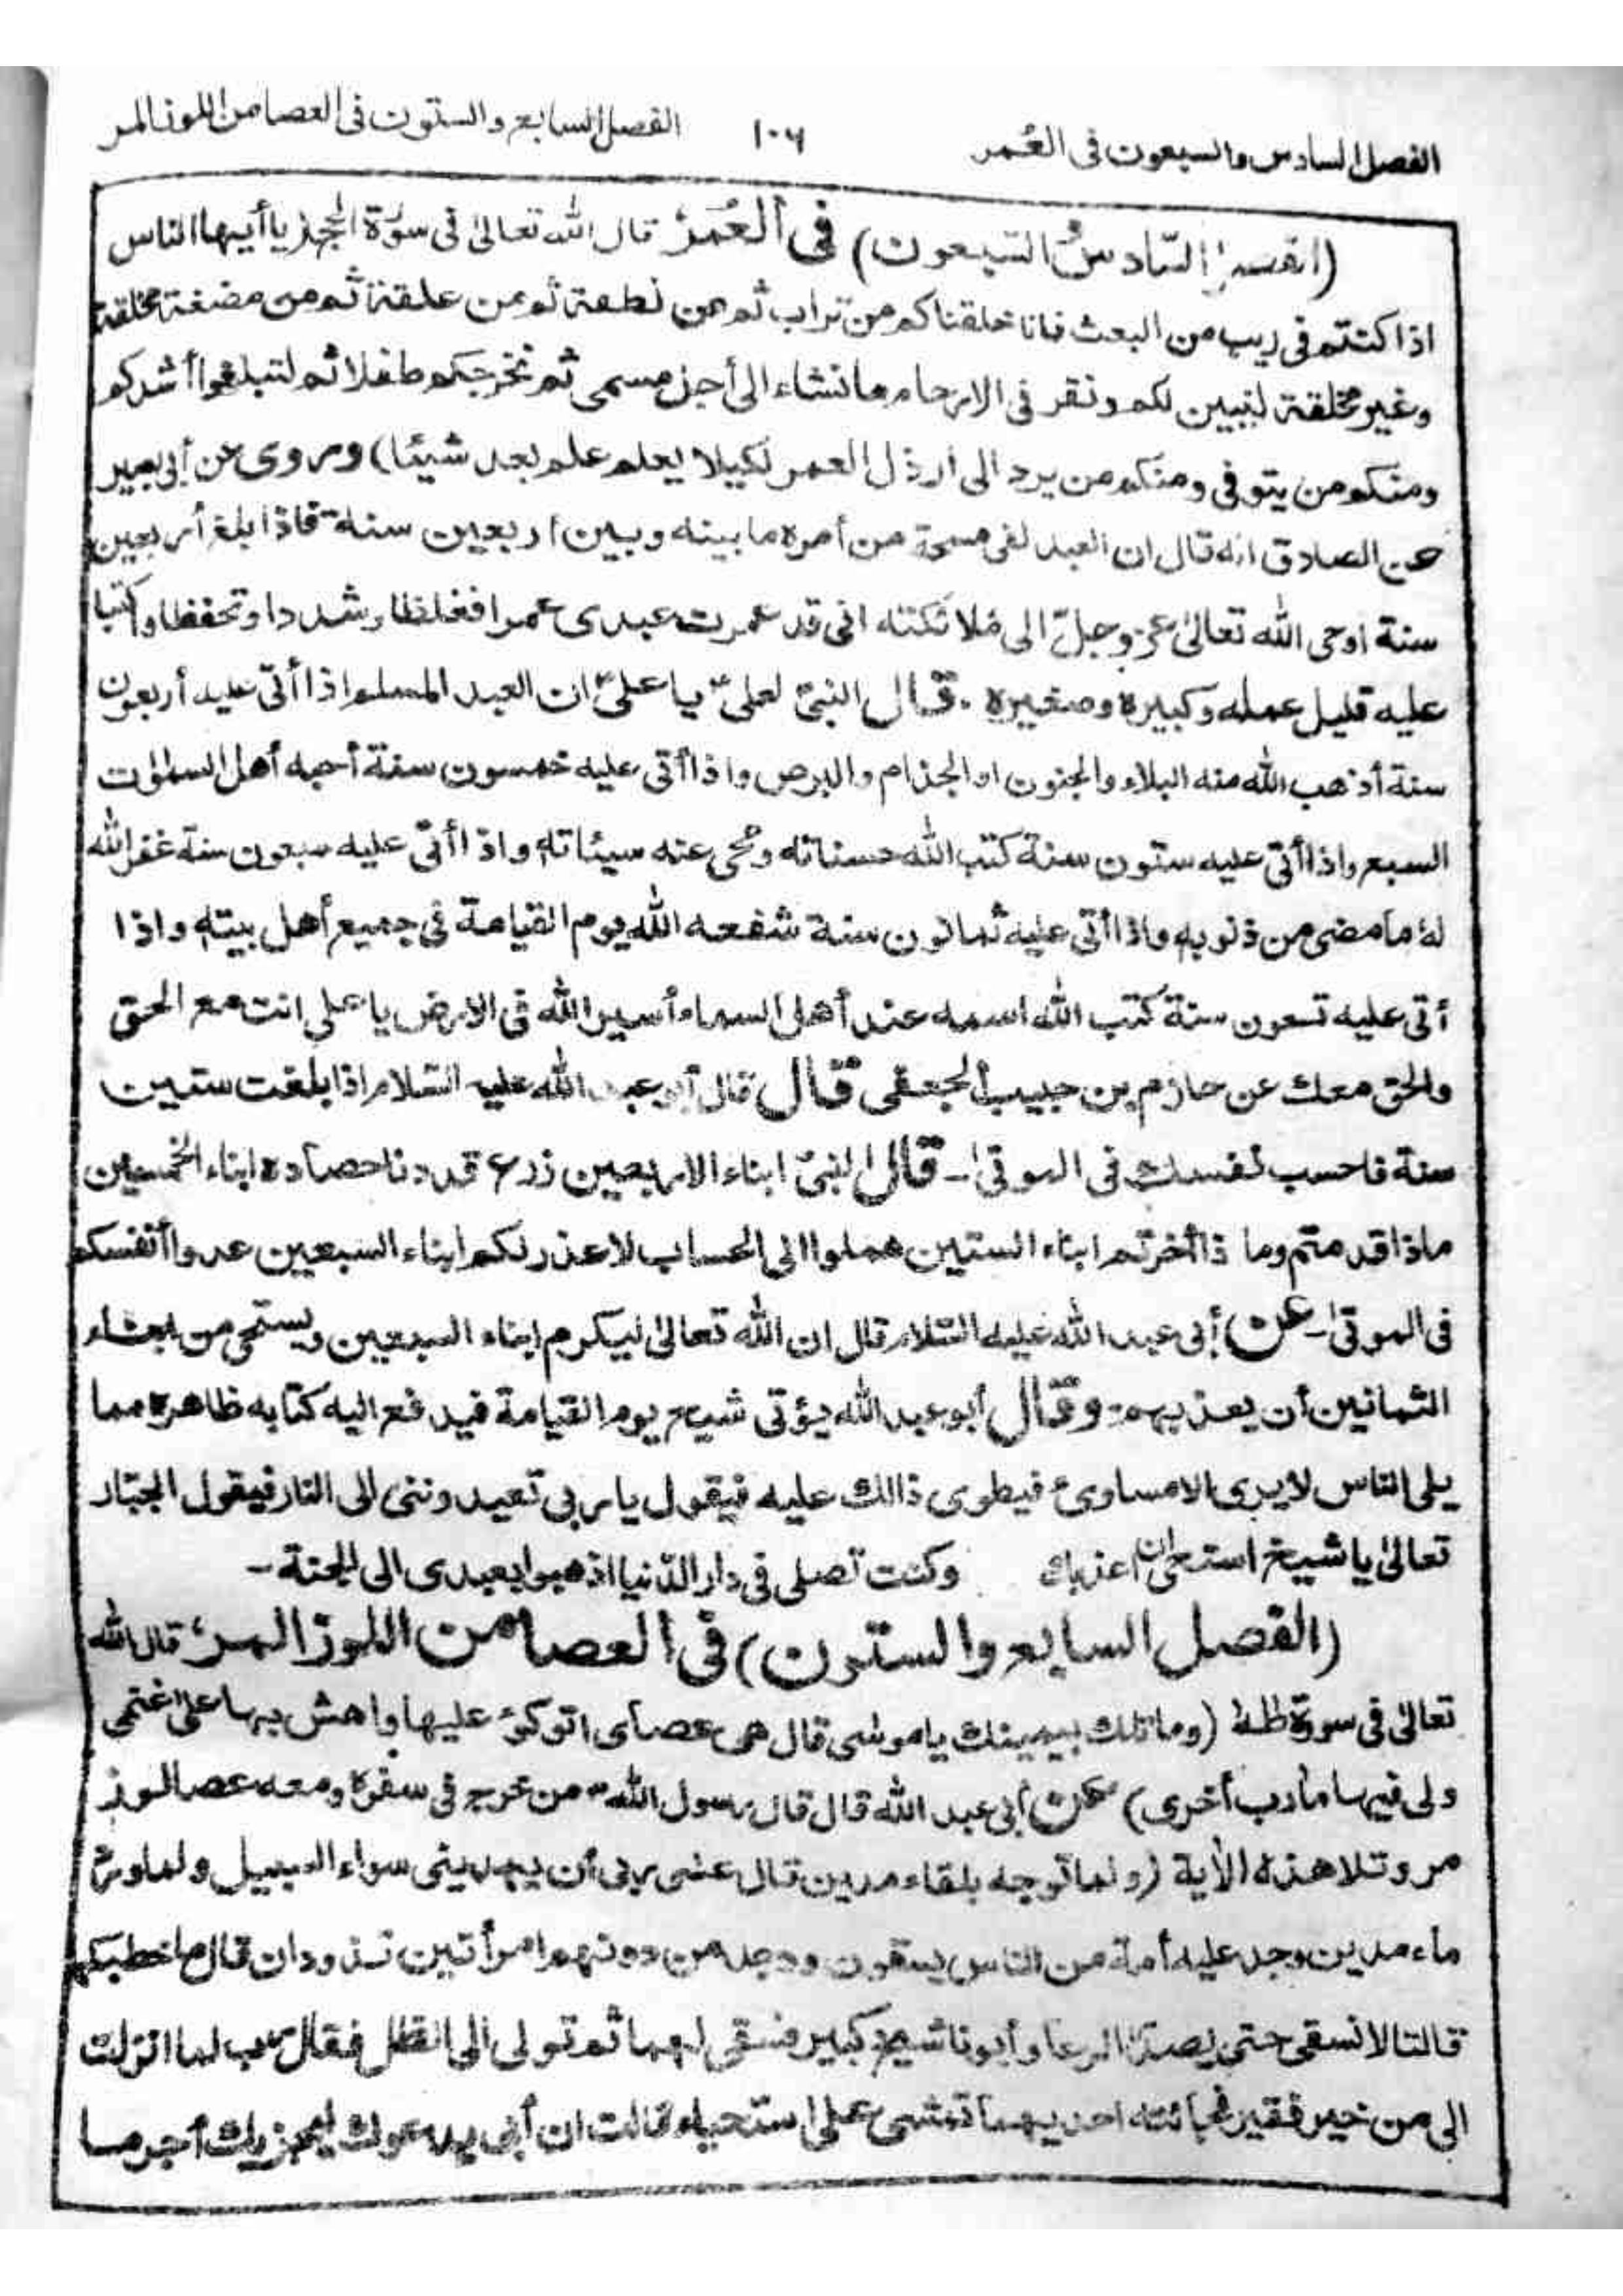 الفصل السادس والسبعون فى العُمر ١٠٦ الفصل السابع والستون فى العصا من اللوز المر
(الفصل السّادسُ السّبعون) فى العُمَرُ قال الله تعالىٰ فى سورة الحج يا أيها الناس
اذا كنتم فى ريب من البعث فانا خلقناكم من تراب ثم من نطفة ثم من علقة ثم من مضغة مخلقة
وغير مخلقة لنبين لكم ونقر فى الارحام ما نشاء الى أجل مسمى ثم نخرجكم طفلا ثم لتبلغوا أشدكم
ومنكم من يتوفى ومنكم من يرد الى ارذل العمر لكيلا يعلم علم بعد شيئًا) وروى عن أبى بصير
عن الصادق انه قال ان العبد لفى مسحة من أمره ما بينه وبين اربعين سنة فاذا بلغ أربعين
سنة اوحى الله تعالىٰ عز وجلّ الى مُلائكته انى قد عمرت عبدى عمرا فغلظا وشددا وتحفظا واكتبا
عليه قليل عمله وكبيره وصغيره . قال النبىّ لعلىّ يا علىّ ان العبد المسلم اذا أتى عليه أربعون
سنة أذهب الله منه البلاء والجنون او الجذام والبرص واذا أتى عليه خمسون سنة أحبه أهل السمٰوٰت
السبع واذا أتى عليه ستون سنة كتب الله حسناته ومُحى عنه سيئاته واذا أتى عليه سبعون سنة غفر الله
لهٗ ما مضى من ذنوبه واذا أتى عليه ثمانون سنة شفعه الله يوم القيامة فى جميع أهل بيته واذا
أتى عليه تسعون سنة كتب الله اسمه عند أهل السماء أسير الله فى الارض يا على انت مع الحق
والحق معك عن حازم بن حبيب الجعفى قال قال أبو عبد الله عليه السّلام اذا بلغت ستين
سنة فاحسب نفسك فى الموتىٰ ـ قال النبىّ ابناء الاربعين زرع قد دنا حصاده ابناء الخمسين
ماذا قدمتم وما ذا أخرتم ابناء الستين هملوا الى الحساب لا عذر لكم ابناء السبعين عدوا أنفسكم
فى الموتىٰ ـ عن أبى عبد الله عليه السّلام قال ان الله تعالىٰ ليكرم ابناء السبعين ويستحى من ابناء
الثمانين أن يعذبهم وقال أبو عبد الله يؤتى شيخ يوم القيامة فيدفع اليه كتابه ظاهره مما
يلى الناس لا يرى الا مساوئ فيطوى ذالك عليه فيقول يا ربى تعيدوننى الى النار فيقول الجبّار
تعالىٰ يا شيخ استحى ان اعذبك وكنت تصلى فى دار الدّنيا اذهبوا بعبدى الى الجنة ـ
(الفصل السابع والستون) فى العصا من اللوز المر قال الله
تعالىٰ فى سورة طٰهٰ (وما تلك بيمينك يا موسٰى قال هى عصاى اتوكؤ عليها واهش بها علىٰ غنمى
ولى فيها مأرب أخرى) عن أبى عبد الله قال قال رسول الله من خرج فى سفره ومعه عصا لوز
مر وتلا هذه الأية (ولما توجه بلقاء مدين قال عسٰى ربى أن يهدينى سواء السبيل ولما ورد
ماء مدين وجد عليه أمة من الناس يسقون ووجد من دونهم امرأتين تذودان قال ما خطبكما
قالتا لا نسقى حتى يصدر الرعا وأبونا شيخ كبير فسقى لهما ثم تولى الى الظل فقال رب لما انزلت
الى من خير فقير فجائته احديهما تمشى على استحياء قالت ان أبى يدعوك ليجزيك أجر ما